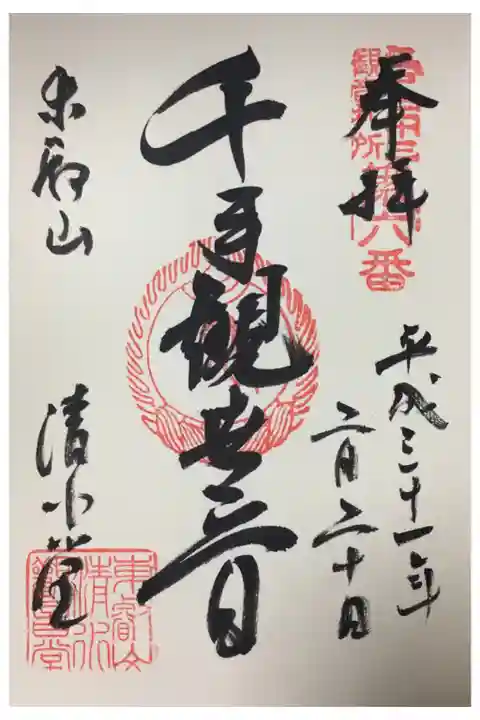 奉拝
六番
平成三十一年
二月二十日
千手観世音
東叡山
清水堂
東叡山
清水
観音堂